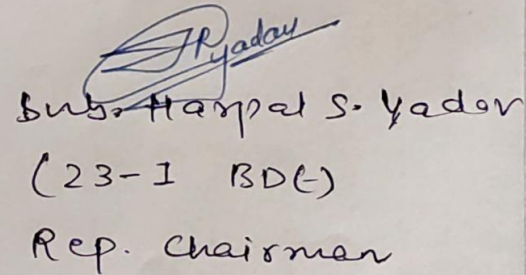 HPyadav
Sub. Harpal S. Yadav
(23-I BD(-)
Rep. Chairman